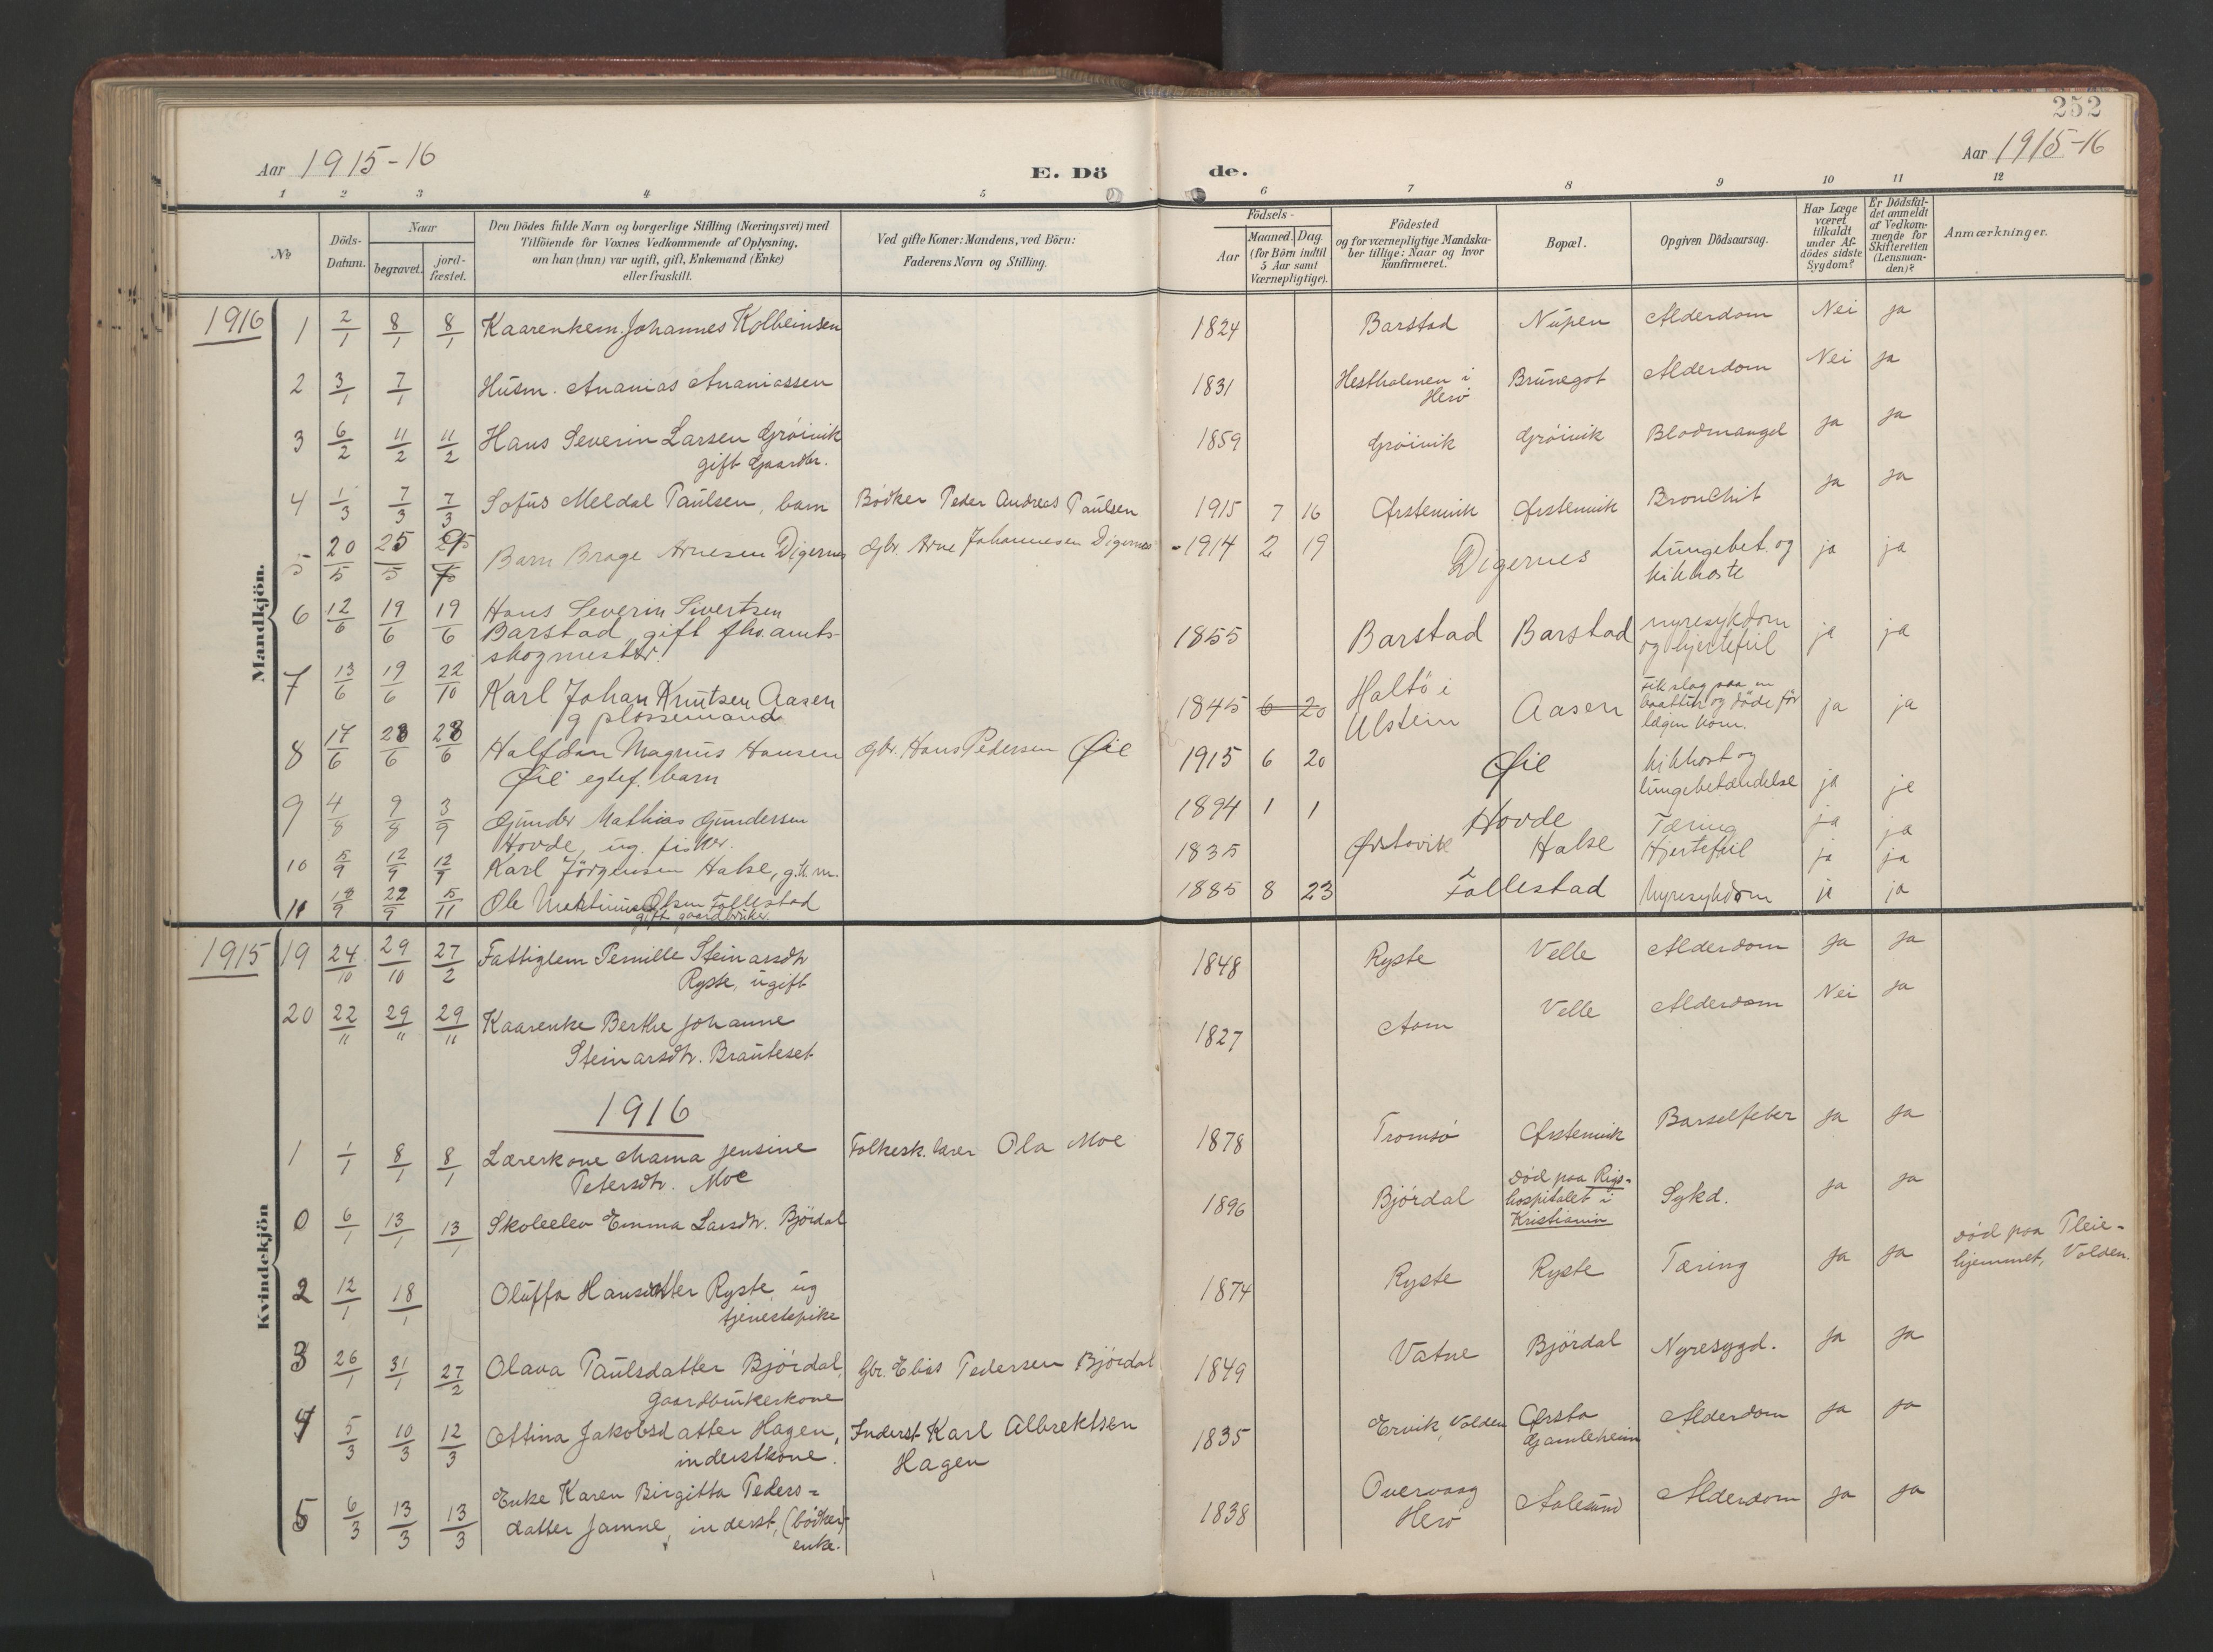 252
Aar 1915-16
E. Dö
de.
Aar 1915-16
1 2 3 4 5 6 7 8 9 10 11 12
No
Döds-Datum.
Naar
begravet.
jord-fæstet.
Den Dödes fulde Navn og borgerlige Stilling (Næringsvei) med
Tilföiende for Voxnes Vedkommende af Oplysning,
om han (hun) var ugift, gift, Enkemand (Enke)
eller fraskilt.
Ved gifte Koner: Mandens, ved Börn:
Faderens Navn og Stilling.
Födsels-
Aar
Maaned. Dag.
(for Börn indtil
5 Aar samt
Værnepligtige).
Födested
og for værnepligtige Mandska-
ber tillige: Naar og hvor
konfirmeret.
Bopæl.
Opgiven Dödsaarsag.
Har Læge
været
tilkaldt
under Af-
dödes sidste
Sygdom?
Er Dödsfal-
det anmeldt
af Vedkom-
mende for
Skifteretten
(Lensman-
den)?
Anmærkninger.
Mandkjön.
1916
1 2/1 8/1 8/1 Kaarenkem. Johannes Kolbeinsen 1824 Barstad Nupen Alderdom Nei ja
2 3/1 7/1 Husm. Ananias Ananiassen 1831 Hestholmen i Brunegot Alderdom Nei ja
Herö
3 6/2 11/2 11/2 Hans Severin Larsen Gröivik 1859 Gröivik Gröivik Blodmangel ja ja
gift Gaardbr.
4 1/3 7/3 7/3 Sofus Meldal Paulsen, barn Bödker Peder Andreas Paulsen 1915 7 16 Ørstenvik Ørstenvik Bronchit ja ja
5 20/5 25/5 Barn Brage Arnesen Digernes Gbr. Arne Johannesen Digernes 1914 2 19 Digernes Lungebet. og ja ja
kikhoste
6 12/6 19/6 19/6 Hans Severin Sivertsen
Barstad, gift fhv. amts- 1855 Barstad Barstad nyresykdom ja ja
skogmester. og hjertefeil
7 13/6 19/6 22/10 Karl Johan Knutsen Aasen 1845 6 20 Haltö i Aasen Fik slag paa en ja ja
g plassemand Ulstein og döde för
lægen kom.
8 17/6 28/6 28/6 Halfdan Magnus Hansen Gbr. Hans Pedersen Øie 1915 6 20 Øie kikhost og ja ja
Øie egtef. barn lungebetændelse
9 4/8 9/8 3/9 Gunder Mathias Gundersen 1894 1 1 Hovde Tæring ja ja
Hovde, ug. fisker.
10 5/9 12/9 12/9 Karl Jörgensen Halse, g. k. m. 1835 Ørstavik Halse Hjertefeil ja ja
11 18/9 22/9 5/11 Ole Martinus Olsen Follestad 1885 8 23 Follestad Nyresykdom ja ja
gift gaardbruker.
Kvindekjön
1915
19 24/10 29/10 27/2 Fattiglem Pernille Steinarsdtr 1848 Ryste Velle Alderdom ja ja
Ryste, ugift
20 22/11 29/11 29/11 Kaarenke Berthe Johanne 1827 Aam Velle Alderdom Nei ja
Steinarsdtr. Brauteset
1916
1 1/1 8/1 8/1 Lærerkone Mama Jensine Folkesk. lærer Ola Moe 1878 Tromsö Ørstenvik Barselfeber ja ja
Petersdtr. Moe
0 6/1 13/1 13/1 Skoleelev Emma Larsdtr. Björdal 1896 Björdal Död paa Rigs- Sykd. ja ja
hospitalet i
Kristiania
2 12/1 18/1 Oluffa Hansdatter Ryste, ug 1874 Ryste Ryste Tæring ja ja Död paa Pleie-
tjenestepike hjemmet, Volden.
3 26/1 31/1 27/2 Olava Paulsdatter Björdal, Gbr. Elias Pedersen Björdal 1849 Vatne Björdal Nyresygd. ja ja
Gaardbrukerkone
4 5/3 10/3 12/3 Ottina Jakobsdatter Hagen, Inderst Karl Albrektsen 1835 Ervik, Volden Ørsta Alderdom ja ja
inderstkone. Hagen Gamleheim
5 6/3 13/3 13/3 Enke Karen Birgitta Peders- 1838 Overvaag Aalesund Alderdom ja ja
datter Jamne, inderst, (bödker)- Herö
enke.